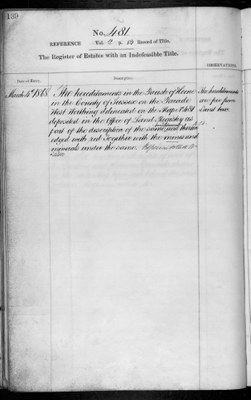 139
No. 481
REFERENCE Vol. 2 p. 19 Record of Title.
The Register of Estates with an Indefeasible Title.
OBSERVATIONS.
Date of Entry.
Description.
March 4th 1868. The hereditaments in the Parish of Heene
in the County of Sussex on the Parade
West Worthing delineated on the Map No 481
deposited in the Office of Land Registry as
part of the description of the same and therein
edged with red Together with the mines and
minerals under the same.
The hereditaments
are free from
Land Tax.